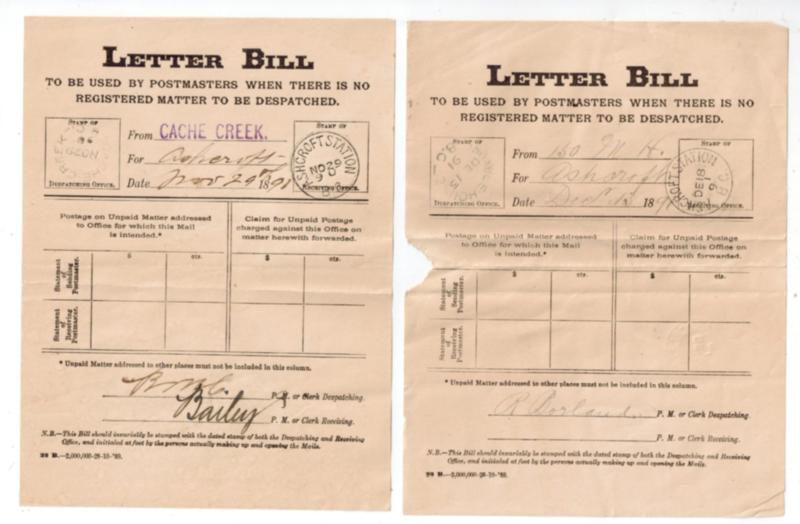 LETTER BILL
TO BE USED BY POSTMASTERS WHEN THERE IS NO
REGISTERED MATTER TO BE DESPATCHED.
STAMP OF
DESPATCHING OFFICE.
From CACHE CREEK.
For Ashcroft
Date Nov 29th 1891
STAMP OF
ASHCROFT STATION
NO 29
RECEIVING OFFICE.
Postage on Unpaid Matter addressed
to Office for which this Mail
is intended.*
Claim for Unpaid Postage
charged against this Office on
matter herewith forwarded.
$ cts. $ cts.
Statement
of
Sending
Postmaster.
Statement
of
Receiving
Postmaster.
* Unpaid Matter addressed to other places must not be included in this column.
P. M. or Clerk Despatching.
Bailey P. M. or Clerk Receiving.
N.B.—This Bill should invariably be stamped with the dated stamp of both the Despatching and Receiving
Office, and initialed at foot by the persons actually making up and opening the Mails.
28 B.—2,000,000-28-10-'89.
LETTER BILL
TO BE USED BY POSTMASTERS WHEN THERE IS NO
REGISTERED MATTER TO BE DESPATCHED.
STAMP OF
DESPATCHING OFFICE.
From 150 M. H.
For Ashcroft
Date Dec. 15 1891
STAMP OF
ASHCROFT STATION
DE 18
91
RECEIVING OFFICE.
Postage on Unpaid Matter addressed
to Office for which this Mail
is intended.*
Claim for Unpaid Postage
charged against this Office on
matter herewith forwarded.
$ cts. $ cts.
Statement
of
Sending
Postmaster.
Statement
of
Receiving
Postmaster.
* Unpaid Matter addressed to other places must not be included in this column.
R Borland P. M. or Clerk Despatching.
P. M. or Clerk Receiving.
N.B.—This Bill should invariably be stamped with the dated stamp of both the Despatching and Receiving
Office, and initialed at foot by the persons actually making up and opening the Mails.
28 B.—2,000,000-28-10-'89.